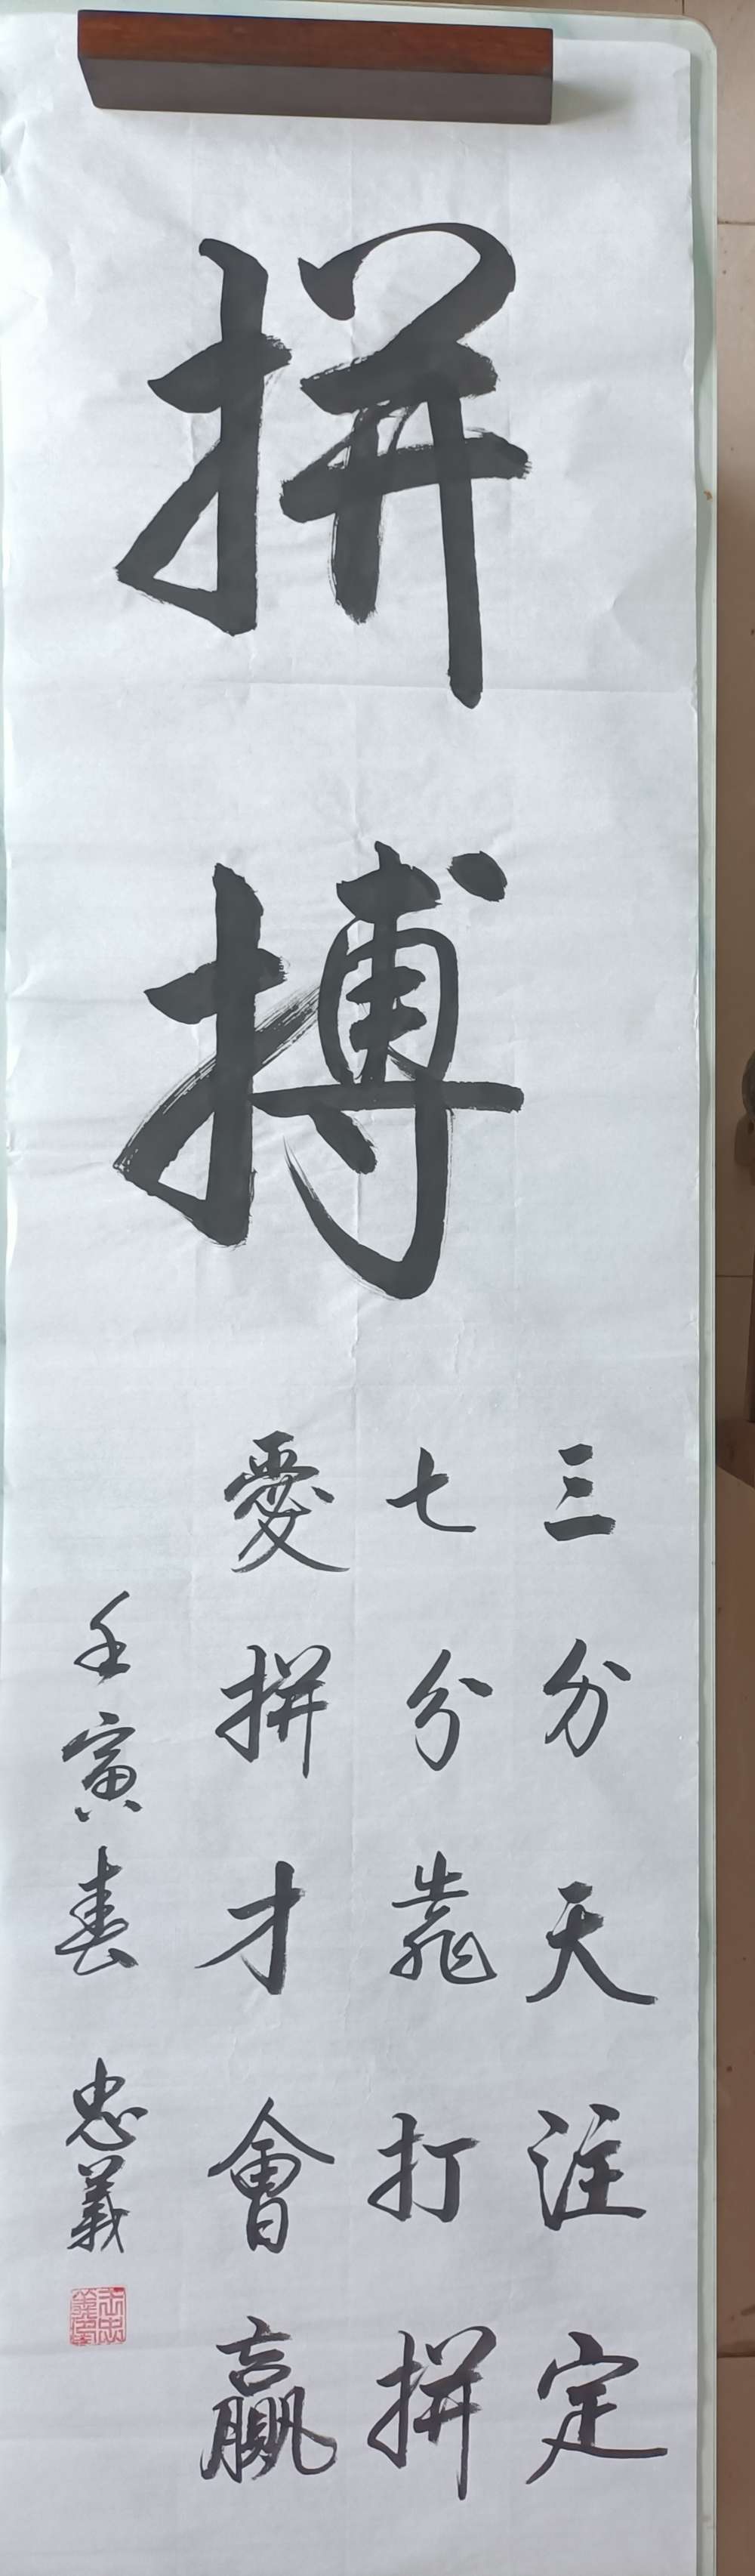 拼搏
三分天注定
七分靠打拼
愛拼才會贏
壬寅春 忠義